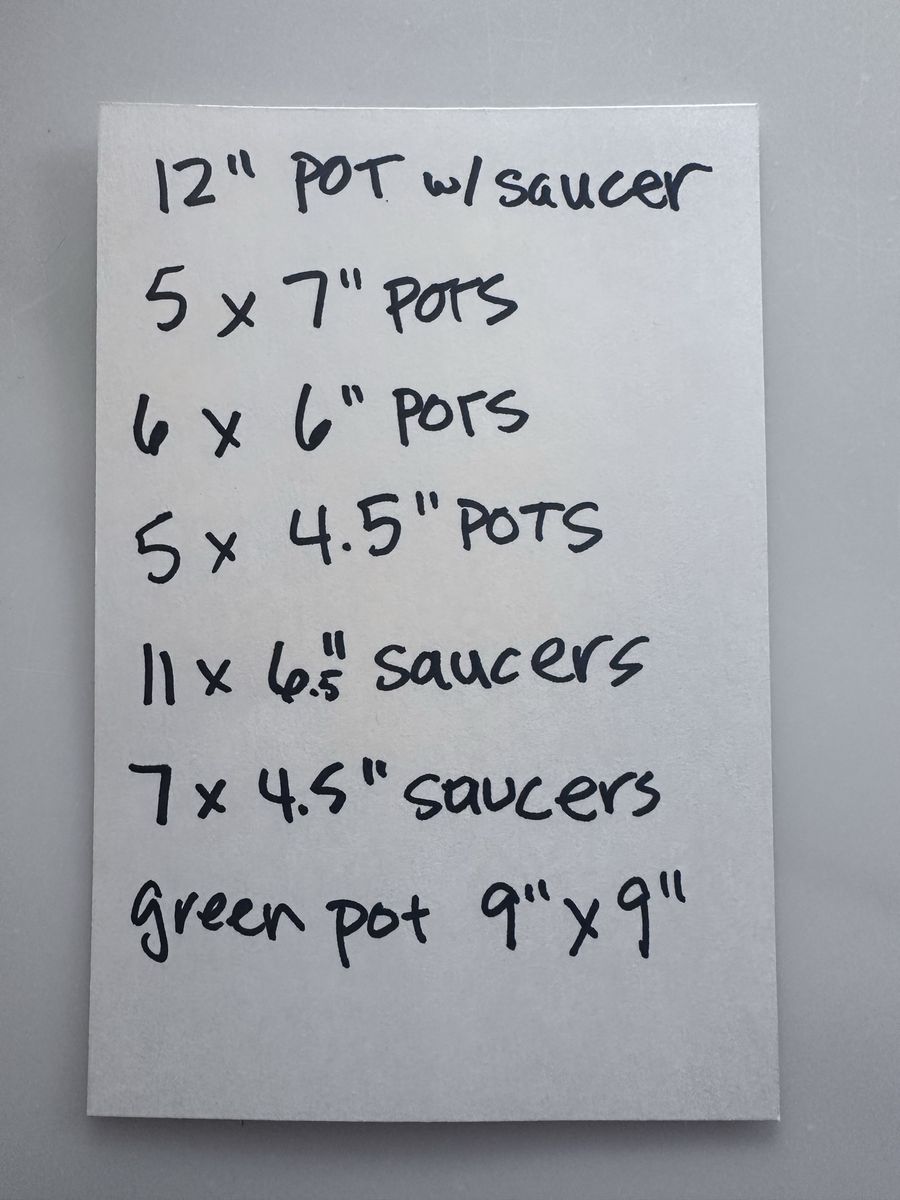 12" POT w/ saucer
5 x 7" POTS
6 x 6" POTS
5 x 4.5" POTS
11 x 6.5" saucers
7 x 4.5" saucers
green pot 9" x 9"